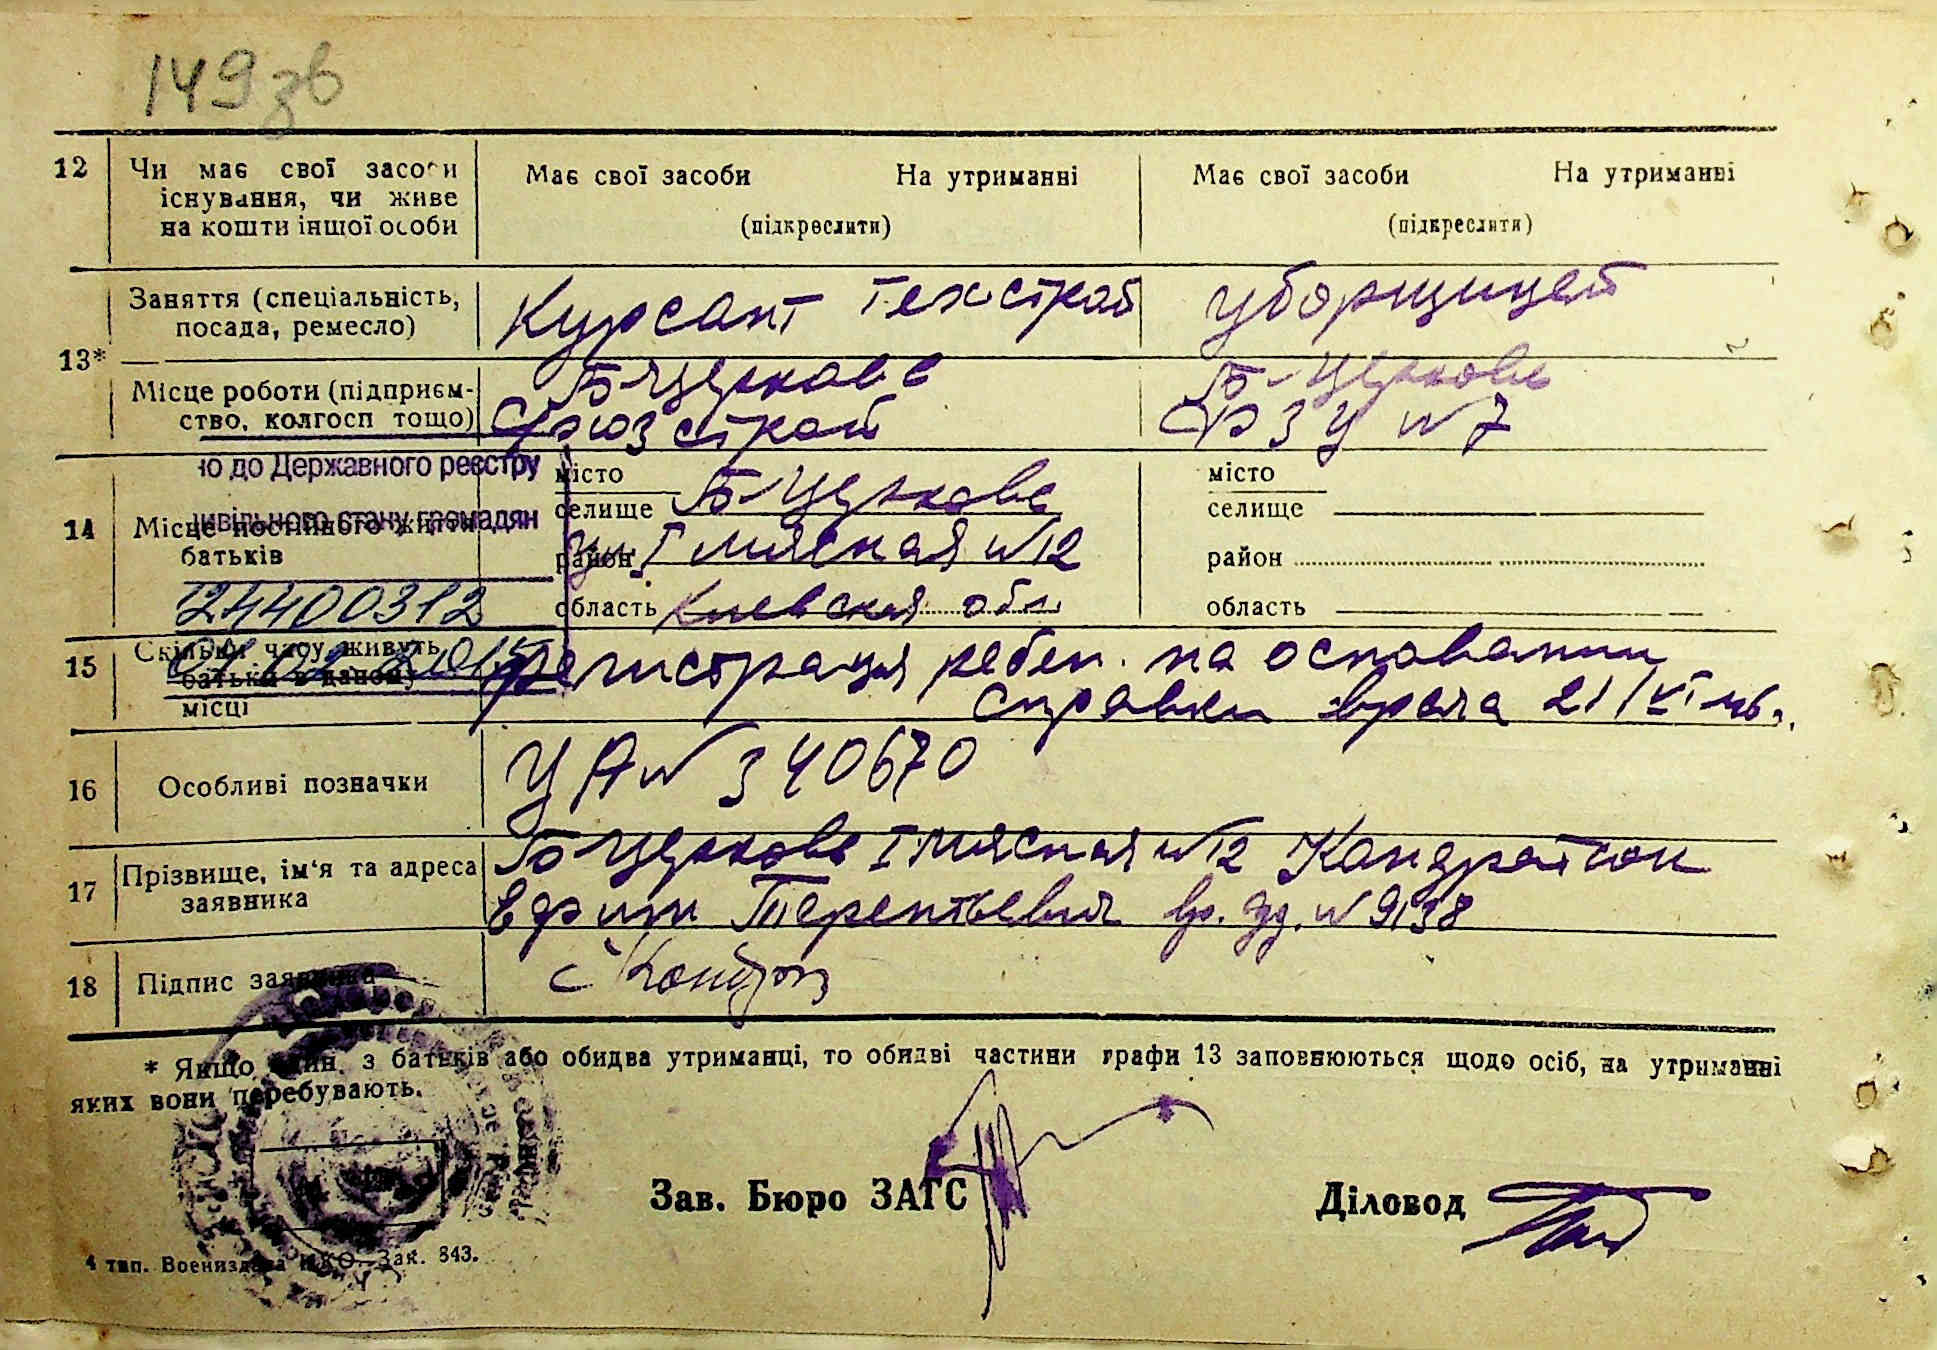 149 зв
12 Чи має свої засоби Має свої засоби На утриманні Має свої засоби На утриманні
існування, чи живе
на кошти іншої особи (підкреслити) (підкреслити)
13* Заняття (спеціальність, Курсант Техстрой уборщицей
посада, ремесло)
Місце роботи (підприєм- Б-Церковь Б-Церковь
ство, колгосп тощо) Союзстрой ФЗУ №7
но до Державного реєстру
цивільного стану громадян
14 Місце постійного життя місто Б-Церковь місто
батьків селище селище
район ул. I Мясная №12 район
область Киевская обл. область
24400312
15 Скільки часу живуть регистрация ребен. на основании
батьки в даному
місці справки врача 21/VI 46 г.
16 Особливі позначки УА № 340670
17 Прізвище, ім'я та адреса Б-Церковь I Мясная №12
заявника Ефим Терентьевич вр. уд. №9138
18 Підпис заявника
* Якщо один з батьків або обидва утриманці, то обидві частини графи 13 заповнюються щодо осіб, на утриманні
яких вони перебувають.
Зав. Бюро ЗАГС Діловод
4 тип. Воениздата НКО. Зак. 843.